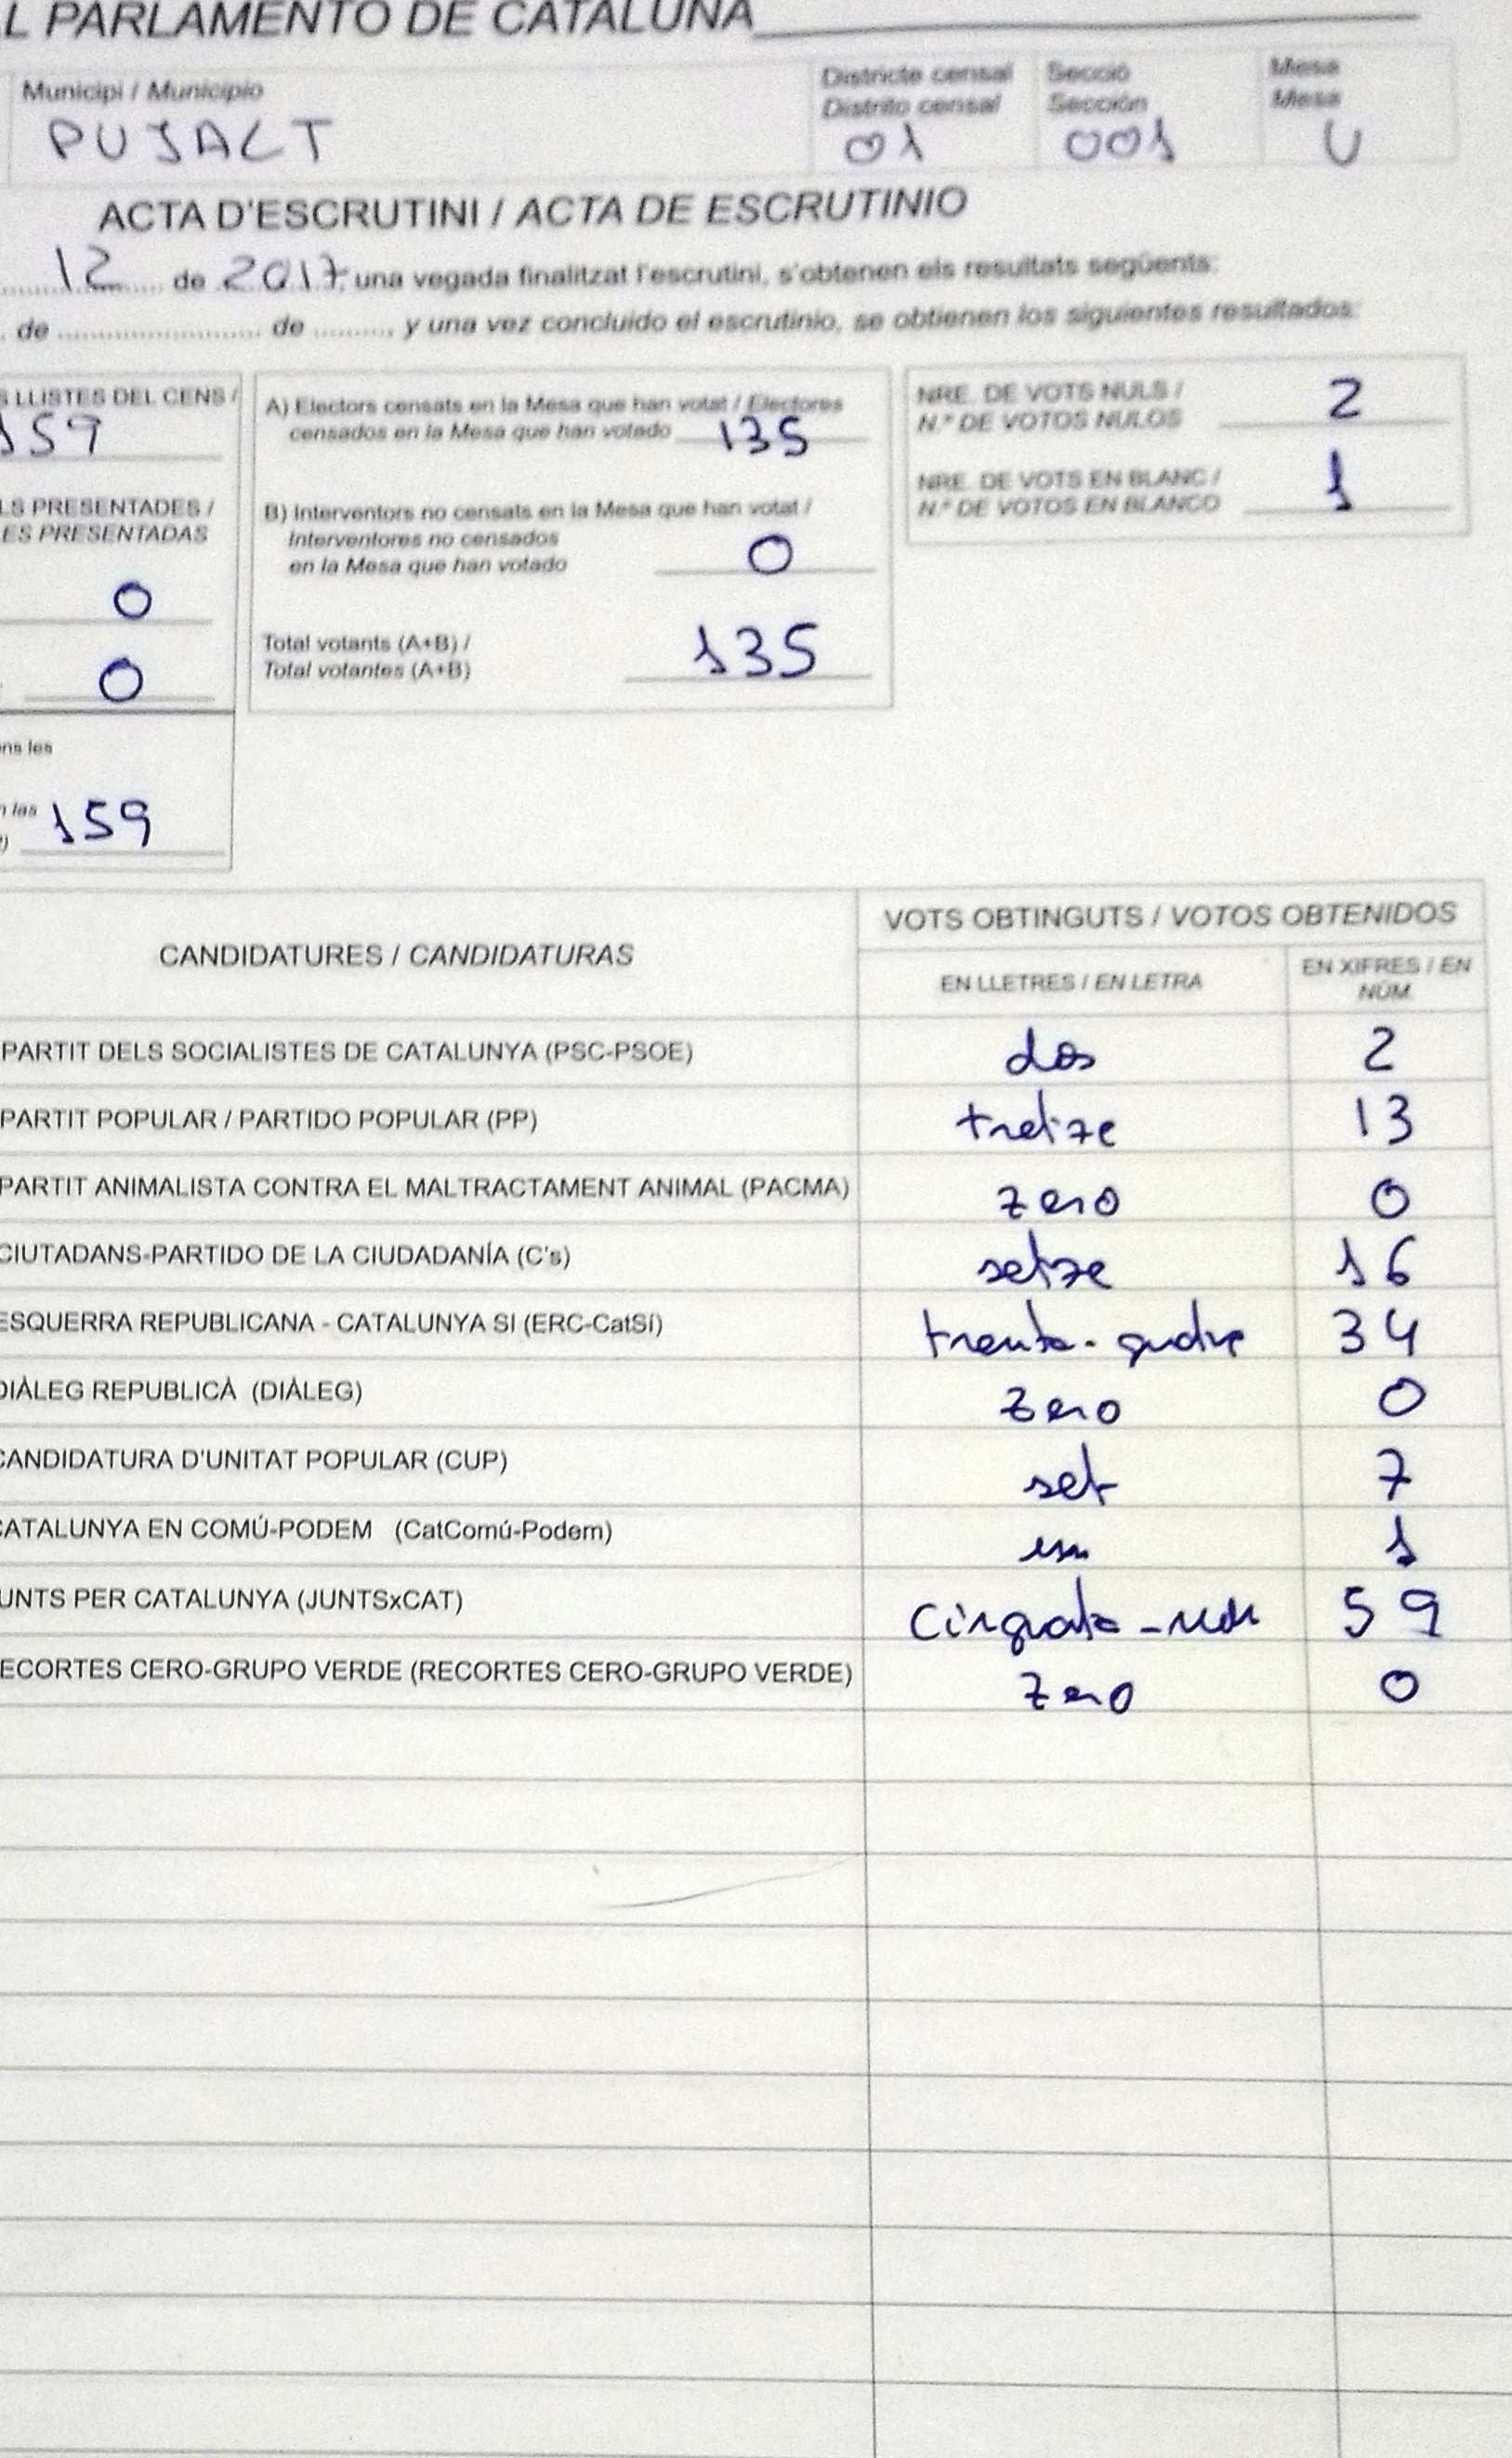 L PARLAMENTO DE CATALUÑA
Municipi / Municipio
Districte censal
Distrito censal
Secció
Sección
Mesa
Mesa
PUJALT
01
001
U
ACTA D'ESCRUTINI / ACTA DE ESCRUTINIO
12 de 2017, una vegada finalitzat l'escrutini, s'obtenen els resultats següents:
. de ........................ de ......... y una vez concluido el escrutinio, se obtienen los siguientes resultados:
S LLISTES DEL CENS /
159
LS PRESENTADES /
ES PRESENTADAS
0
0
ens les
n las
) 159
A) Electors censats en la Mesa que han votat / Electores
censados en la Mesa que han votado 135
B) Interventors no censats en la Mesa que han votat /
Interventores no censados
en la Mesa que han votado 0
Total votants (A+B) /
Total votantes (A+B) 135
NRE. DE VOTS NULS /
N.º DE VOTOS NULOS 2
NRE. DE VOTS EN BLANC /
N.º DE VOTOS EN BLANCO 1
CANDIDATURES / CANDIDATURAS
VOTS OBTINGUTS / VOTOS OBTENIDOS
EN LLETRES / EN LETRA
EN XIFRES / EN
NÚM.
PARTIT DELS SOCIALISTES DE CATALUNYA (PSC-PSOE) dos 2
PARTIT POPULAR / PARTIDO POPULAR (PP) tretze 13
PARTIT ANIMALISTA CONTRA EL MALTRACTAMENT ANIMAL (PACMA) zero 0
CIUTADANS-PARTIDO DE LA CIUDADANÍA (C's) setze 16
ESQUERRA REPUBLICANA - CATALUNYA SI (ERC-CatSí) trenta-quatre 34
DIÀLEG REPUBLICÀ (DIÀLEG) zero 0
CANDIDATURA D'UNITAT POPULAR (CUP) set 7
CATALUNYA EN COMÚ-PODEM (CatComú-Podem) un 1
UNTS PER CATALUNYA (JUNTSxCAT) Cinquata-nou 59
ECORTES CERO-GRUPO VERDE (RECORTES CERO-GRUPO VERDE) zero 0